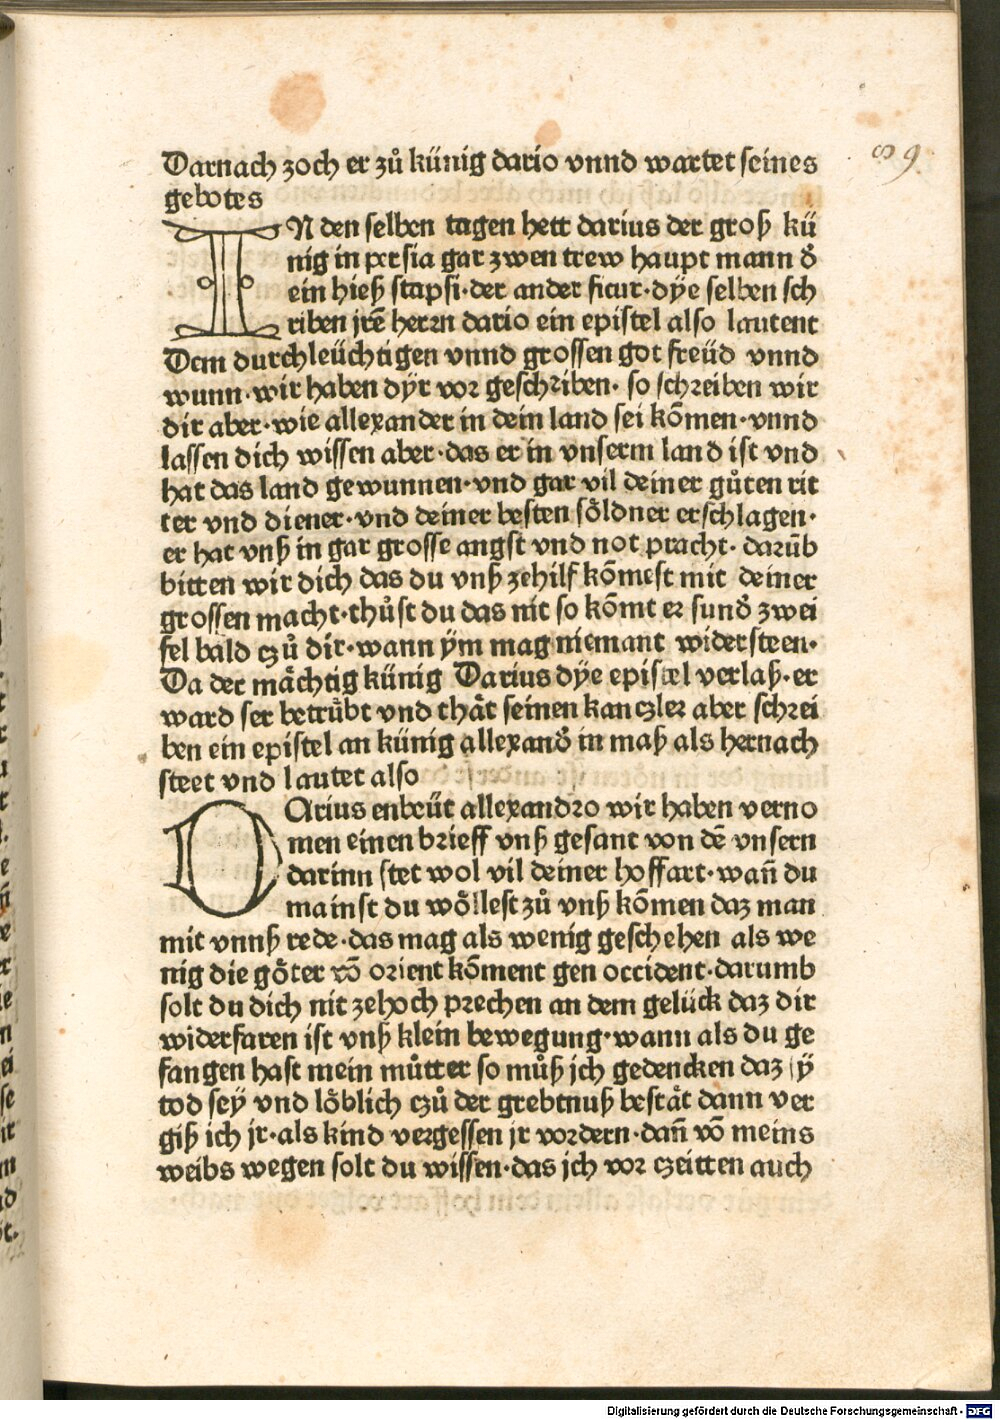 Darnach zoch er zů künig dario vnnd wartet seines
gebotes
IN den selben tagen hett darius der groß kü
nig in persia gar zwen trew haupt mann d̄
ein hieß stapsi·der ander sicur·dÿe selben sch
riben jrē herrn dario ein epistel also lautent
Dem durchleüchtigen vnnd grossen got freüd vnnd
wunn·wir haben dÿr vor geschriben· so schreiben wir
dir aber·wie allexander in dein land sei kōmen·vnnd
lassen dich wissen aber·das er in vnserm land ist vnd
hat das land gewunnen·vnd gar vil deiner gůten rit
ter vnd diener·vnd deiner besten söldner erschlagen·
er hat vnß in gar grosse angst vnd not pracht· darūb
bitten wir dich das du vnß zehilf kōmest mit deiner
grossen macht·thůst du das nit so kōmt er sund̄ zwei
fel bald czů dir·wann ÿm mag niemant widersteen·
Da der mächtig künig Darius dÿe epistel verlaß·er
ward ser betrübt vnd thät seinen kanczler aber schrei
ben ein epistel an künig allexand̄ in maß als hernach
steet vnd lautet also
DArius enbeüt allexandro wir haben verno
men einen brieff vnß gesant von dē vnsern
darinn stet wol vil deiner hoffart·wan̄ du
mainst du wöllest zů vnß kōmen daz man
mit vnnß rede·das mag als wenig geschehen als we
nig die göter vō orient kōment gen occident·darumb
solt du dich nit zehoch prechen an dem gelück daz dir
widerfaren ist vnß klein bewegung·wann als du ge
fangen hast mein můtter so můß jch gedencken daz sÿ
tod seÿ vnd löblich czů der grebtnuß bestät dann ver
giß ich jr·als kind vergessen jr vordern·dan̄ vō meins
weibs wegen solt du wissen·das jch vor czeitten auch
89
Digitalisierung gefördert durch die Deutsche Forschungsgemeinschaft - DFG